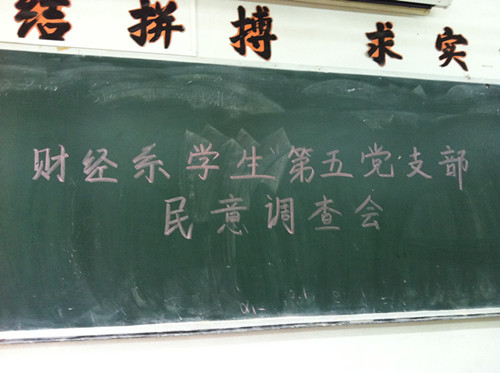 结 拼 搏 求 实
财经系学生第五党支部
民意调查会